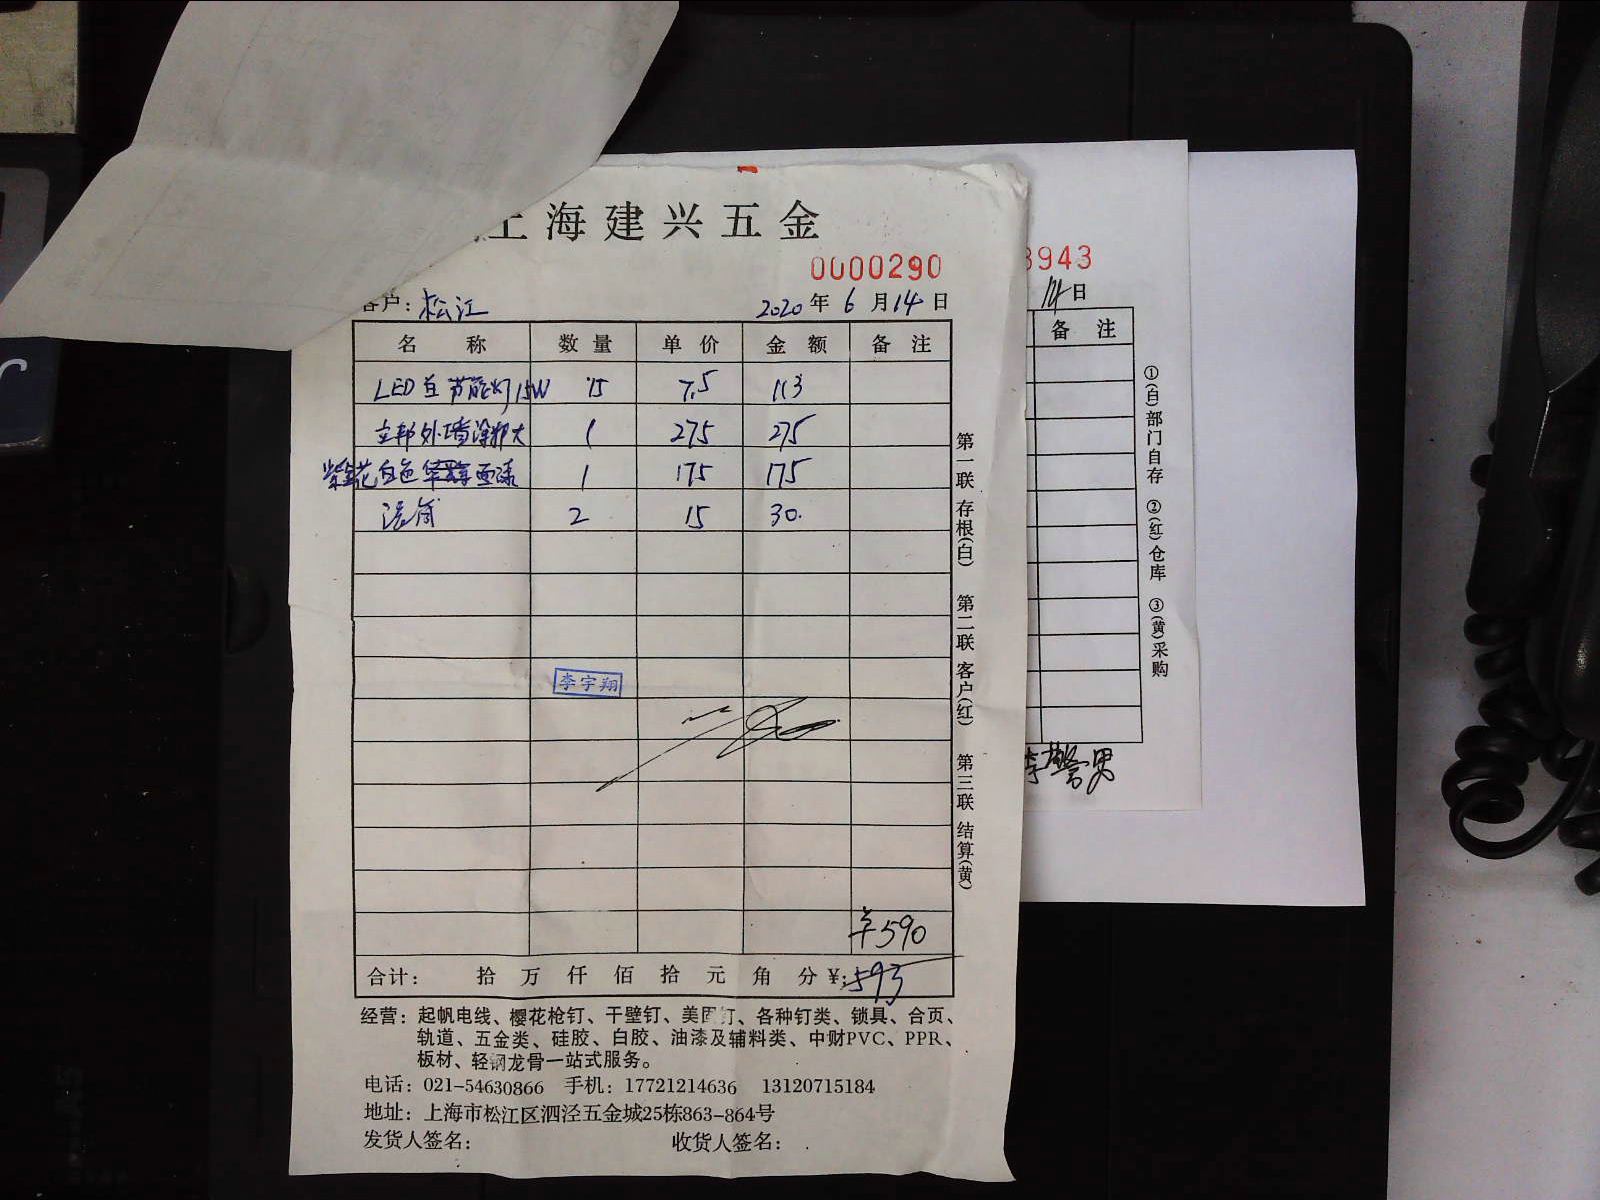 上海建兴五金
0000290
客户：松江 2020年6月14日
名称 数量 单价 金额 备注
LED 节能灯15W 15 7.5 113
立邦外墙涂 大 1 275 275
紫金花白色 面漆 1 175 175
滚筒 2 15 30.
李宇翔
¥590
合计： 拾 万 仟 佰 拾 元 角 分 ¥:593
经营：起帆电线、樱花枪钉、干壁钉、美固钉、各种钉类、锁具、合页、
轨道、五金类、硅胶、白胶、油漆及辅料类、中财PVC、PPR、
板材、轻钢龙骨一站式服务。
电话：021-54630866 手机：17721214636 13120715184
地址：上海市松江区泗泾五金城25栋863-864号
发货人签名： 收货人签名：
第一联 存根(白) 第二联 客户(红) 第三联 结算(黄)
3943
14日
备注
①(白)部门自存 ②(红)仓库 ③(黄)采购
李警男